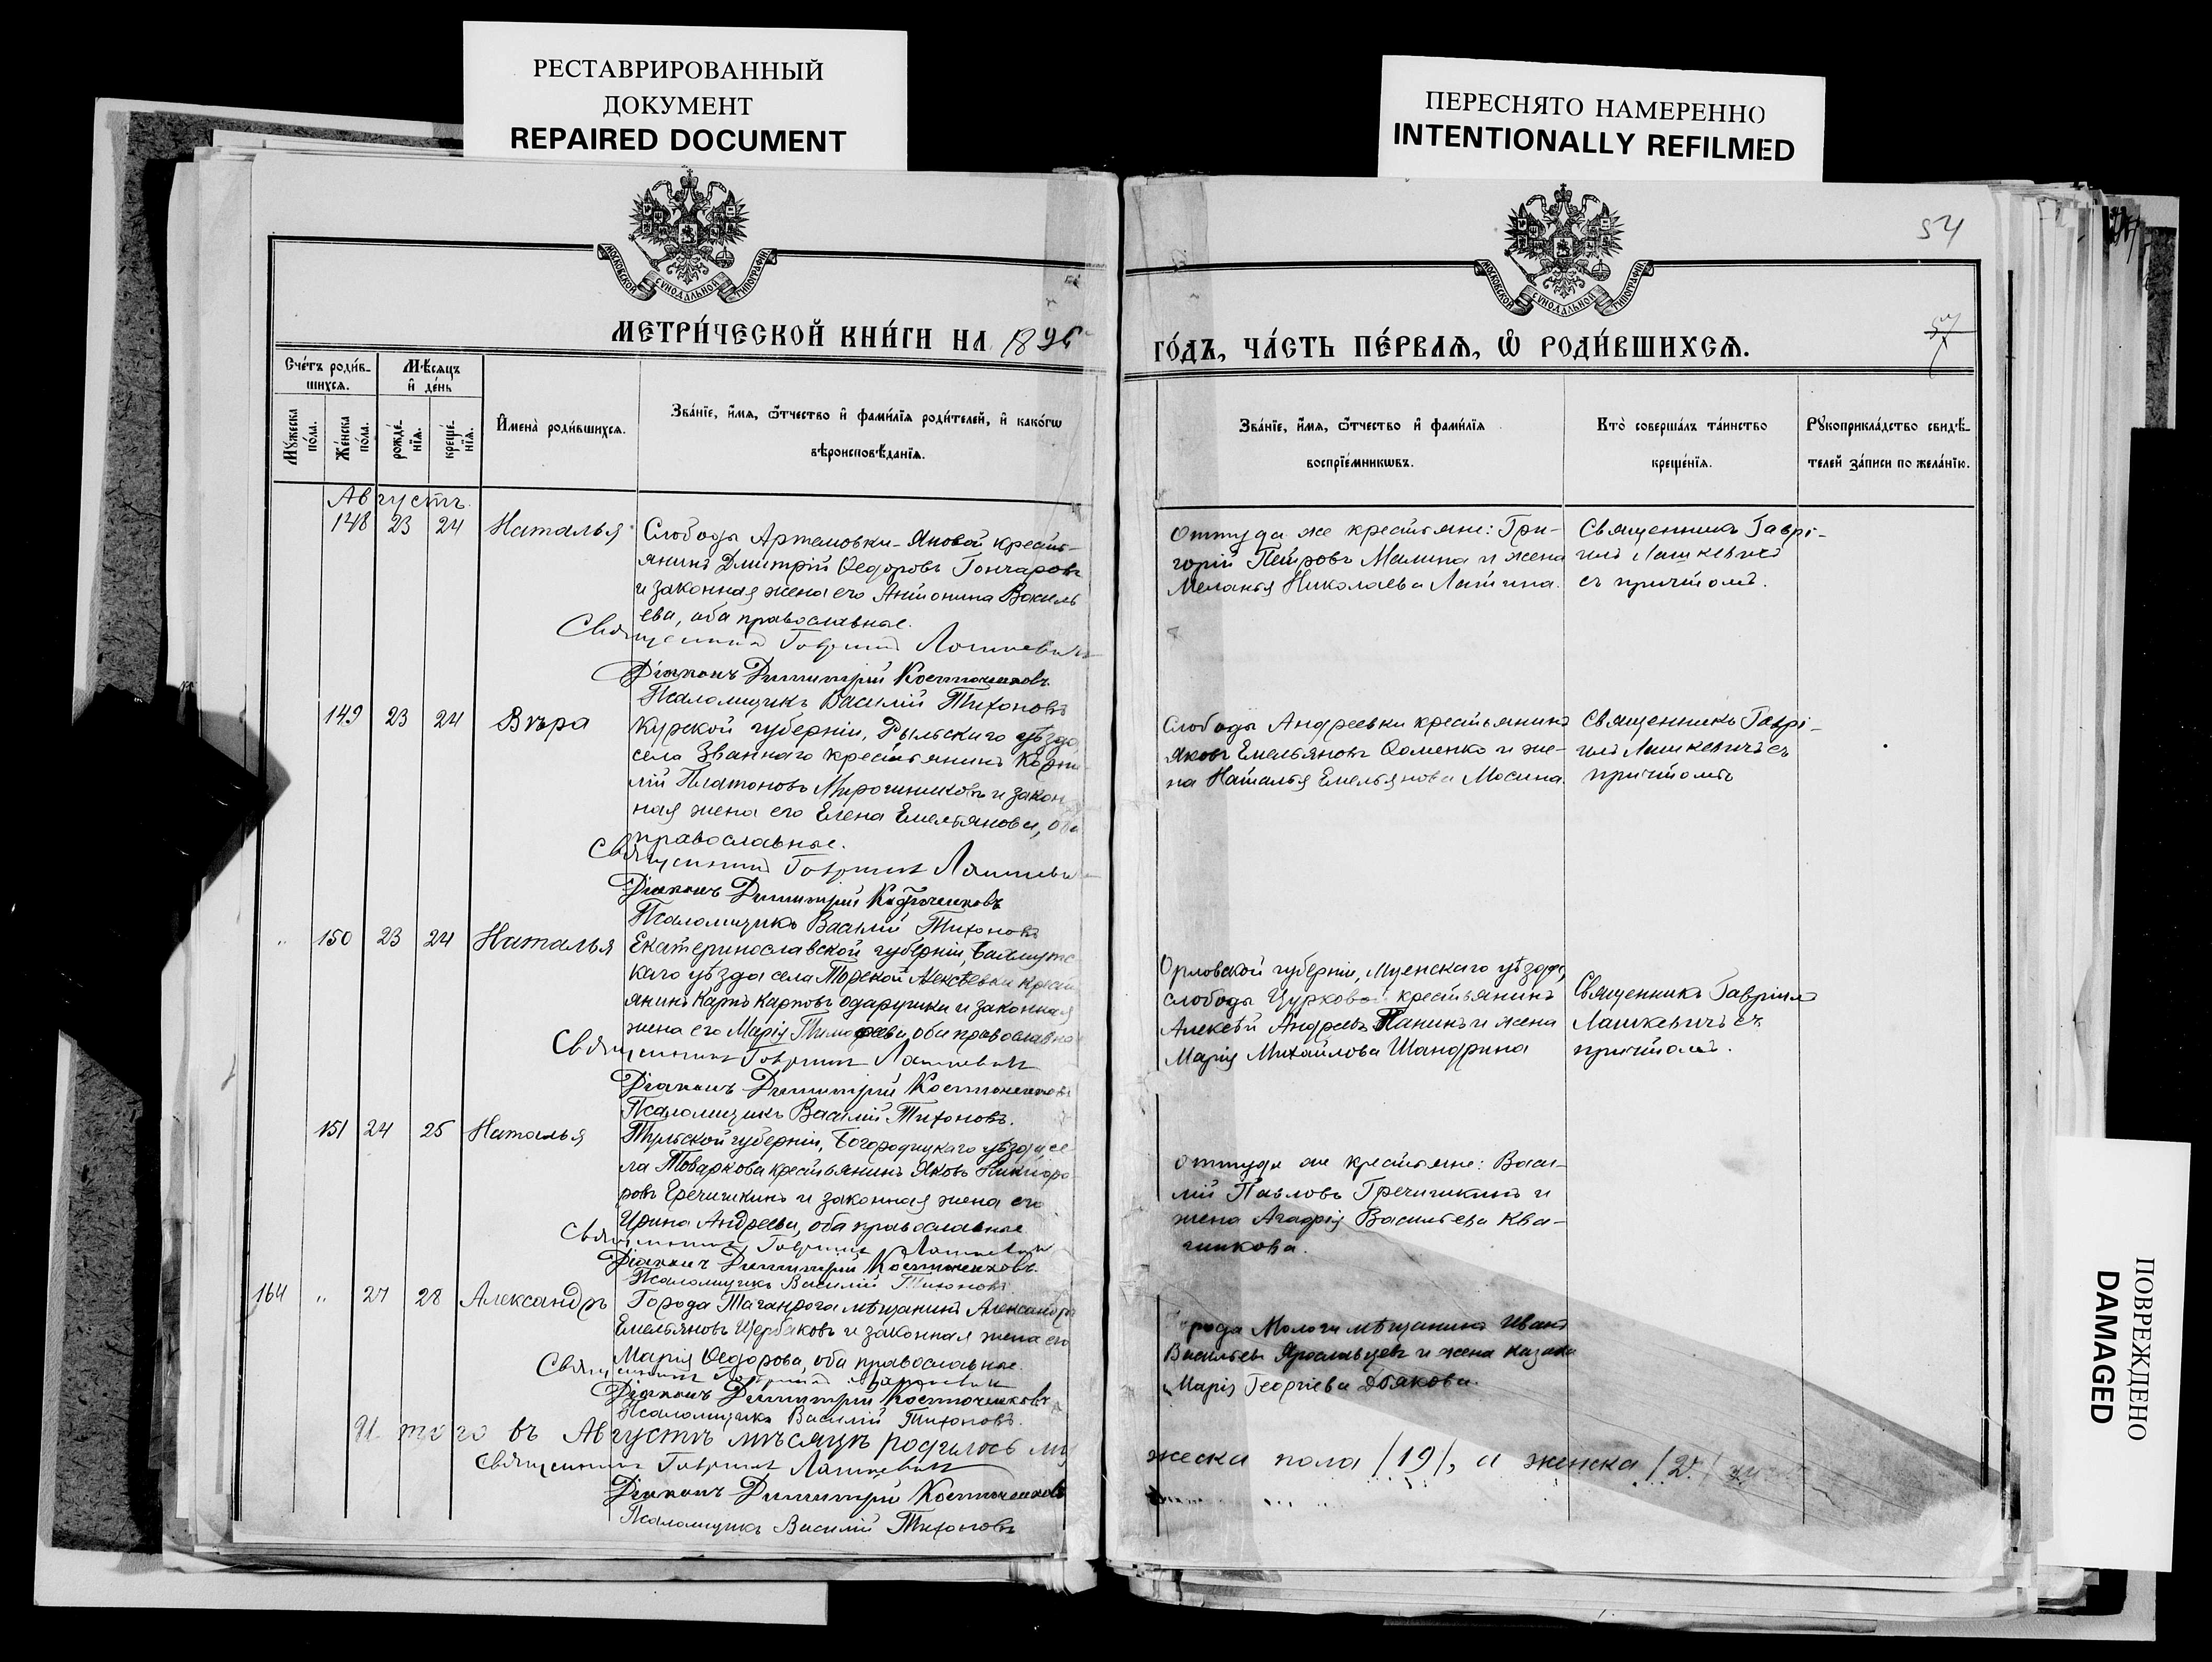 РЕСТАВРИРОВАННЫЙ
ДОКУМЕНТ
REPAIRED DOCUMENT
ПЕРЕСНЯТО НАМЕРЕННО
INTENTIONALLY REFILMED
54
57
МОСКОВСКОЙ СѴНОДАЛЬНОЙ ТИПОГРАФІИ
МОСКОВСКОЙ СѴНОДАЛЬНОЙ ТИПОГРАФІИ
МЕТРИ́ЧЕСКОЙ КНИ́ГИ НА 1896
ГО́ДЪ, ЧА́СТЬ ПЕ́РВАЯ, Ѡ РОДИ́ВШИХСЯ.
Сче́тъ роди́в-
шихся.
Мѣ́сяцъ
и҆ де́нь
Мꙋ́жеска по́ла.
Же́нска по́ла.
рожде́нїя.
креще́нїя.
И҆мена̀ роди́вшихся.
Зва́нїе, и҆́мя, ѻ҆́тчество и҆ фами́лїя роди́телей, и҆ како́гѡ
вѣроисповѣ́данїя.
Зва́нїе, и҆́мя, ѻ҆́тчество и҆ фами́лїя
воспрїе́мникѡвъ.
Кто̀ соверша́лъ та́инство
креще́нїя.
Рꙋкоприкла́дство свидѣ́-
телей за́писи по жела́нїю.
Августъ
148 23 24 Наталья
Слободы Артемовки-Яновой кресть-
янинъ Дмитрій Ѳедоровъ Гончаровъ
и законная жена его Антонина Василь
ева, оба православные.
Священникъ Гавріилъ Лашкевичъ
Діаконъ Димитрій Костюченковъ
Псаломщикъ Василій Тихоновъ
Оттуда же крестьяне: Гри-
горій Петровъ Малина и жена
Меланья Николаева Лапина.
Священникъ Гаврі-
илъ Лашкевичъ
съ причтомъ.
149 23 24 Вѣра
Курской губерніи, Рыльскаго уѣзда,
села Званнаго крестьянинъ Корни-
лій Платоновъ Мирошниковъ и закон
ная жена его Елена Емельянова, оба
православные.
Священникъ Гавріилъ Лашкевичъ
Діаконъ Димитрій Костюченковъ
Псаломщикъ Василій Тихоновъ
Слободы Андреевки крестьянинъ
Яковъ Емельяновъ Ѳоменко и же-
на Наталья Емельянова Мосина
Священникъ Гаврі-
илъ Лашкевичъ съ
причтомъ
" 150 23 24 Наталья
Екатеринославской губерніи, Бахмутс
каго уѣзда села Торской Алексѣевки крест
янинъ Карпъ Карповъ Одарушки и законная
жена его Марія Тимофеева, оба православные
Священникъ Гавріилъ Лашкевичъ
Діаконъ Димитрій Костюченковъ
Псаломщикъ Василій Тихоновъ.
Орловской губерніи, Мценскаго уѣзда,
слободы крестьянинъ
Алексѣй Андреевъ Панинъ и жена
Марія Михайлова Шандрина
Священникъ Гавріилъ
Лашкевичъ съ
причтомъ.
151 24 25 Наталья
Тульской губерніи, Богородицкаго уѣзда, се
ла Товаркова крестьянинъ Яковъ Никифо
ровъ Гречишкинъ и законная жена его
Ирина Андреева, оба православные
Священникъ Гавріилъ Лашкевичъ
Діаконъ Димитрій Костюченковъ.
Псаломщикъ Василій Тихоновъ
Оттуда же крестьяне: Васи-
лій Павловъ Гречишкинъ и
жена Агафія Васильева Ква-
шнкова.
164 " 27 28 Александръ
Города Таганрога мѣщанинъ Александръ
Емельяновъ Щербаковъ и законная жена его
Марія Ѳедорова, оба православные.
Священникъ Гавріилъ Лашкевичъ
Діаконъ Димитрій Костюченковъ
Псаломщикъ Василій Тихоновъ.
Города Мологи мѣщанинъ Иванъ
Васильевъ Ярославцевъ и жена казака
Марія Георгіева Дьякова.
Итого въ Августѣ мѣсяцѣ родилось му
жеска пола /19/, а женска /2
Священникъ Гавріилъ Лашкевичъ
Діаконъ Димитрій Костюченковъ
Псаломщикъ Василій Тихоновъ
ПОВРЕЖДЕНО
DAMAGED